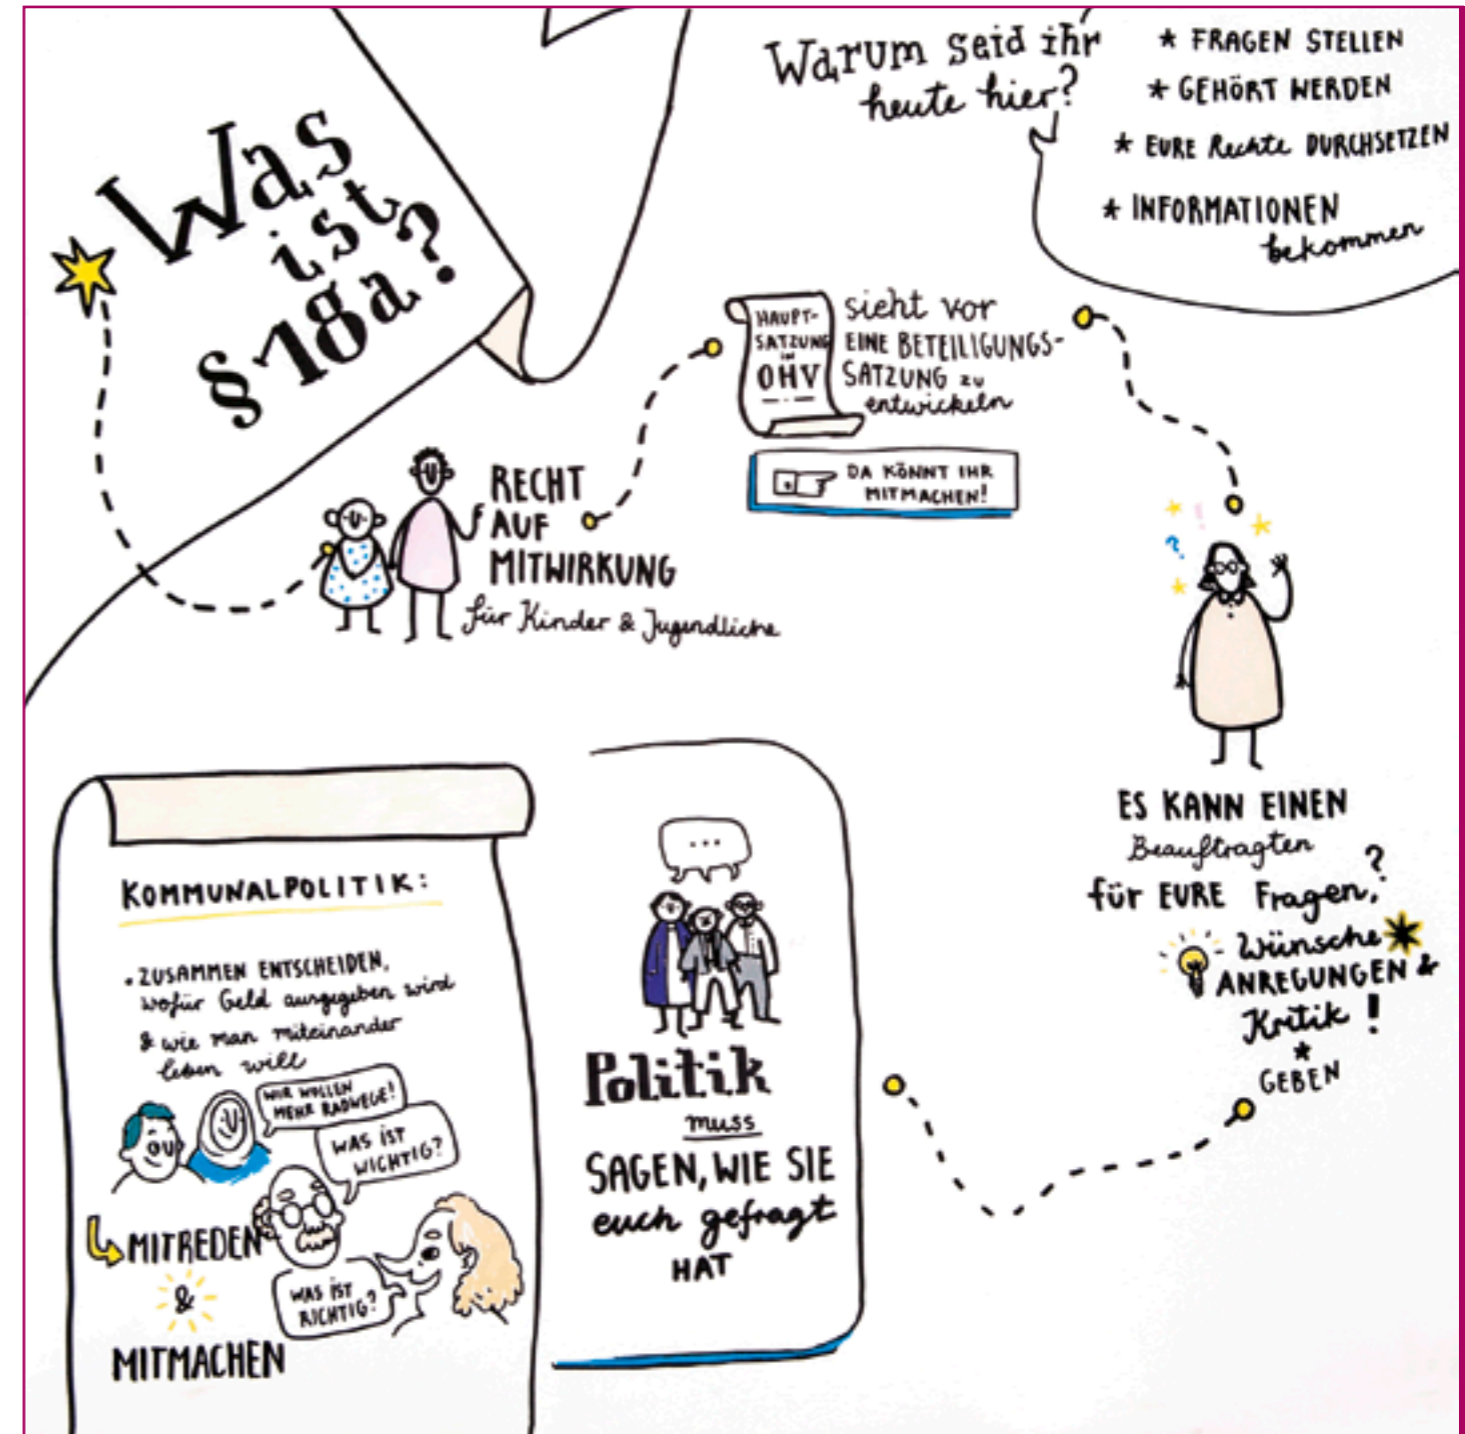 Was
ist
§18a?
Warum seid ihr
heute hier?
* FRAGEN STELLEN
* GEHÖRT WERDEN
* EURE Rechte DURCHSETZEN
* INFORMATIONEN
bekommen
RECHT
AUF
MITWIRKUNG
für Kinder & Jugendliche
HAUPT-
SATZUNG
in
OHV
sieht vor
EINE BETEILIGUNGS-
SATZUNG zu
entwickeln
DA KÖNNT IHR
MITMACHEN!
?
!
ES KANN EINEN
Beauftragten
für EURE Fragen,?
Wünsche
ANREGUNGEN &
Kritik!
GEBEN
...
Politik
muss
SAGEN, WIE SIE
euch gefragt
HAT
KOMMUNALPOLITIK:
• ZUSAMMEN ENTSCHEIDEN,
wofür Geld ausgegeben wird
& wie man miteinander
leben will
WIR WOLLEN
MEHR RADWEGE!
WAS IST
WICHTIG?
MITREDEN
&
MITMACHEN
WAS IST
RICHTIG?